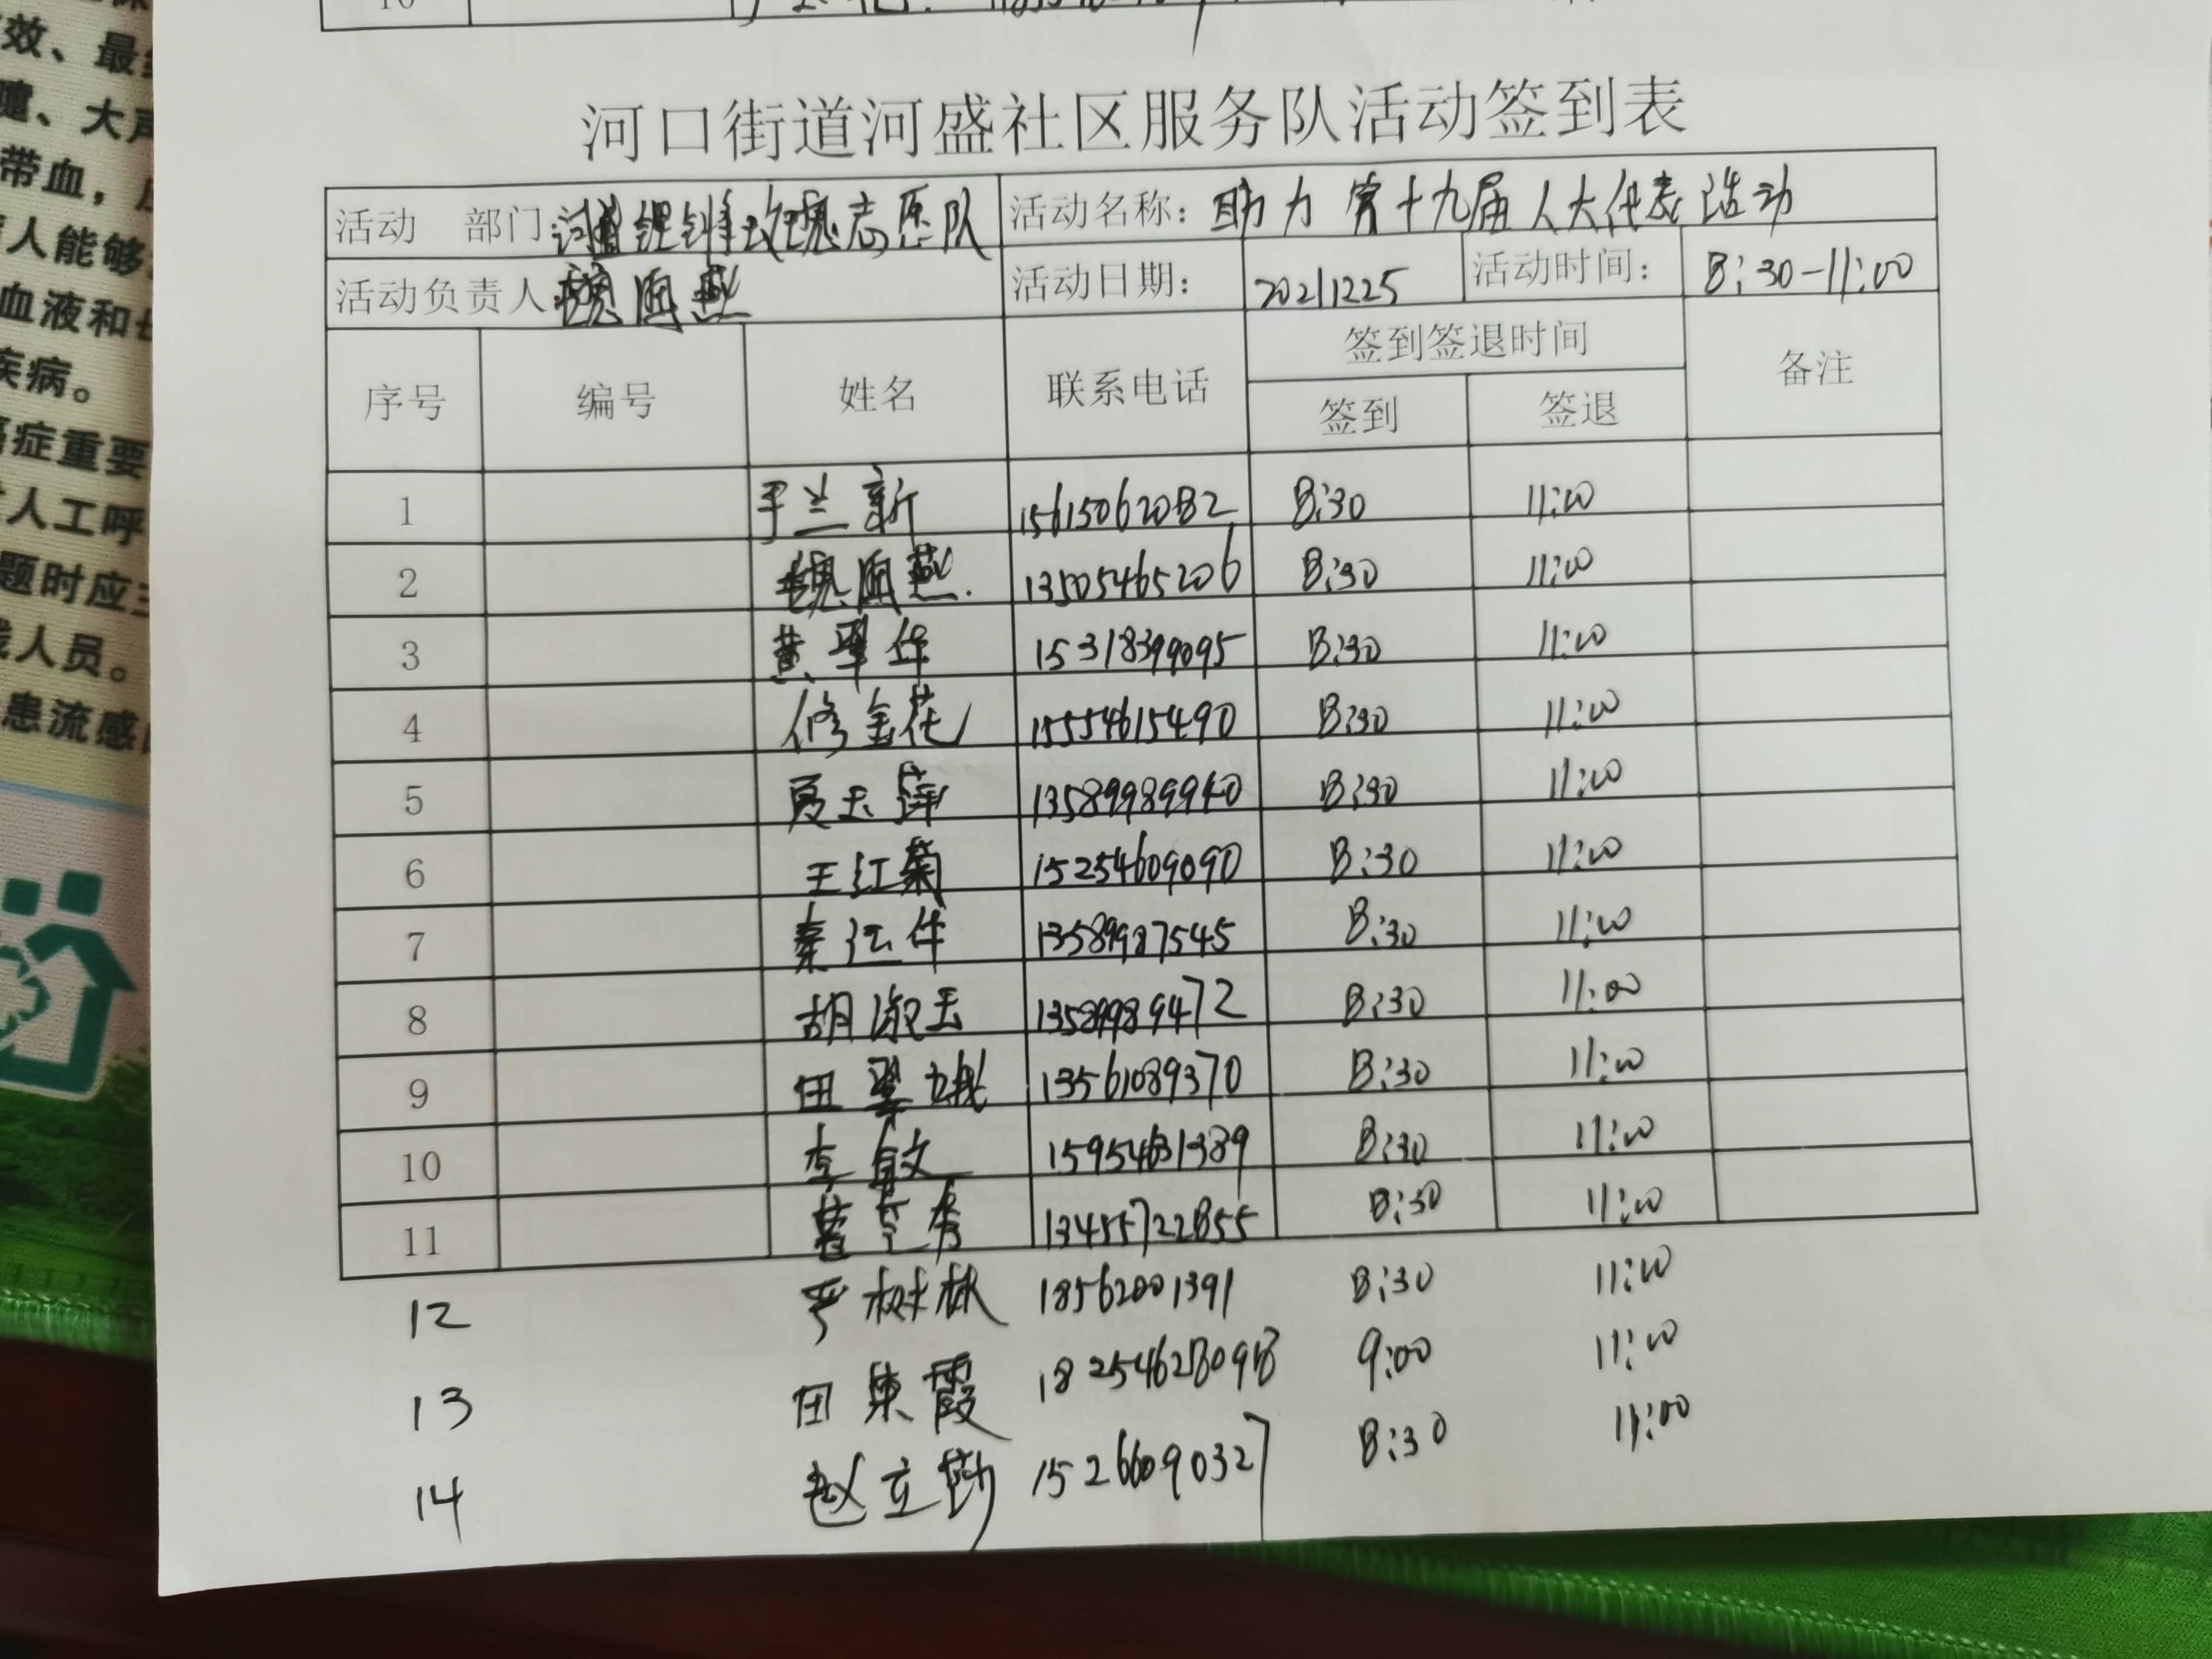 效、最
大声
带血，
人能够
血液和
疾病。
症重要
人工呼
题时应
人员。
患流感
10
河口街道河盛社区服务队活动签到表
活动 部门 河盛锂锋玫瑰志愿队 活动名称：助力第十九届人大代表活动
活动负责人 魏海燕 活动日期： 20211225 活动时间： 8:30-11:00
序号 编号 姓名 联系电话 签到签退时间 备注
签到 签退
1 于兰新 15615062082 8:30 11:00
2 魏海燕 13505465206 8:30 11:00
3 黄翠华 15318399095 8:30 11:00
4 修金花 15554615490 8:30 11:00
5 夏玉萍 13589989940 8:30 11:00
6 王江菊 15254609090 8:30 11:00
7 秦江华 13589987545 8:30 11:00
8 胡淑玉 13589989472 8:30 11:00
9 田翠娥 13561089370 8:30 11:00
10 李敏 15954631389 8:30 11:00
11 秀 13455722855 8:30 11:00
12 严树林 18562001391 8:30 11:00
13 田集霞 18254628098 9:00 11:00
14 赵立勤 15266090327 8:30 11:00